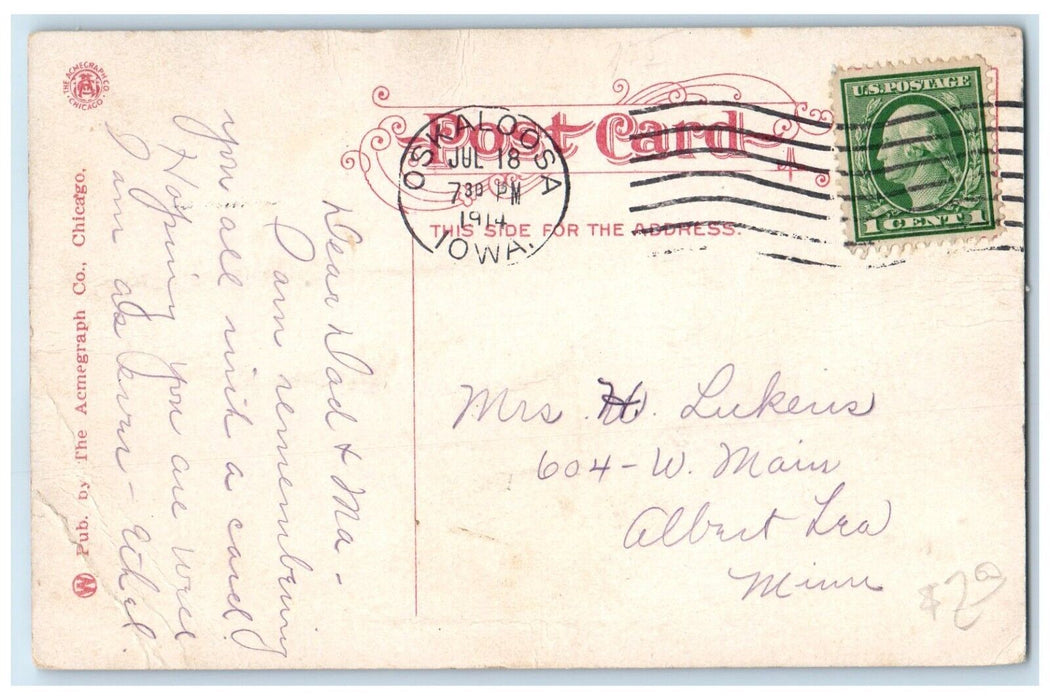 THE ACMEGRAPH CO.
CHICAGO
Post Card
THIS SIDE FOR THE ADDRESS.
OSKALOOSA
JUL 18
7 30 PM
1914
IOWA.
U.S. POSTAGE
1 CENT 1
Dear Dad & Ma -
I am remembering
you all with a card.
Hoping you are well
I am as ever - Ethel
Mrs. H. Lukens
604 - W. Main
Albert Lea
Minn
$2 00
M Pub. by The Acmegraph Co., Chicago,